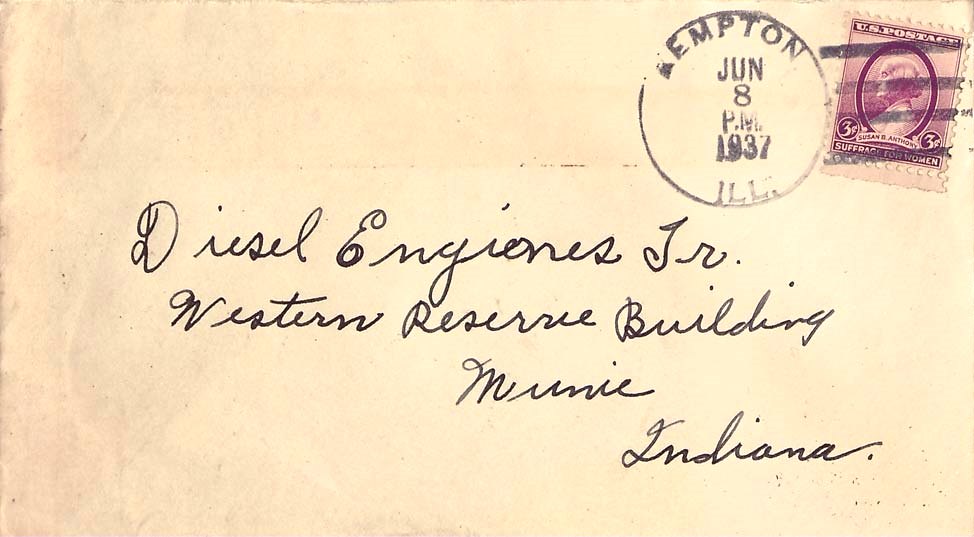 KEMPTON
JUN
8
P.M.
1937
ILL.
U.S. POSTAGE
3¢ SUSAN B. ANTHONY 3¢
SUFFRAGE FOR WOMEN
Diesel Engiones Tr.
Western Reserve Building
Munie
Indiana.